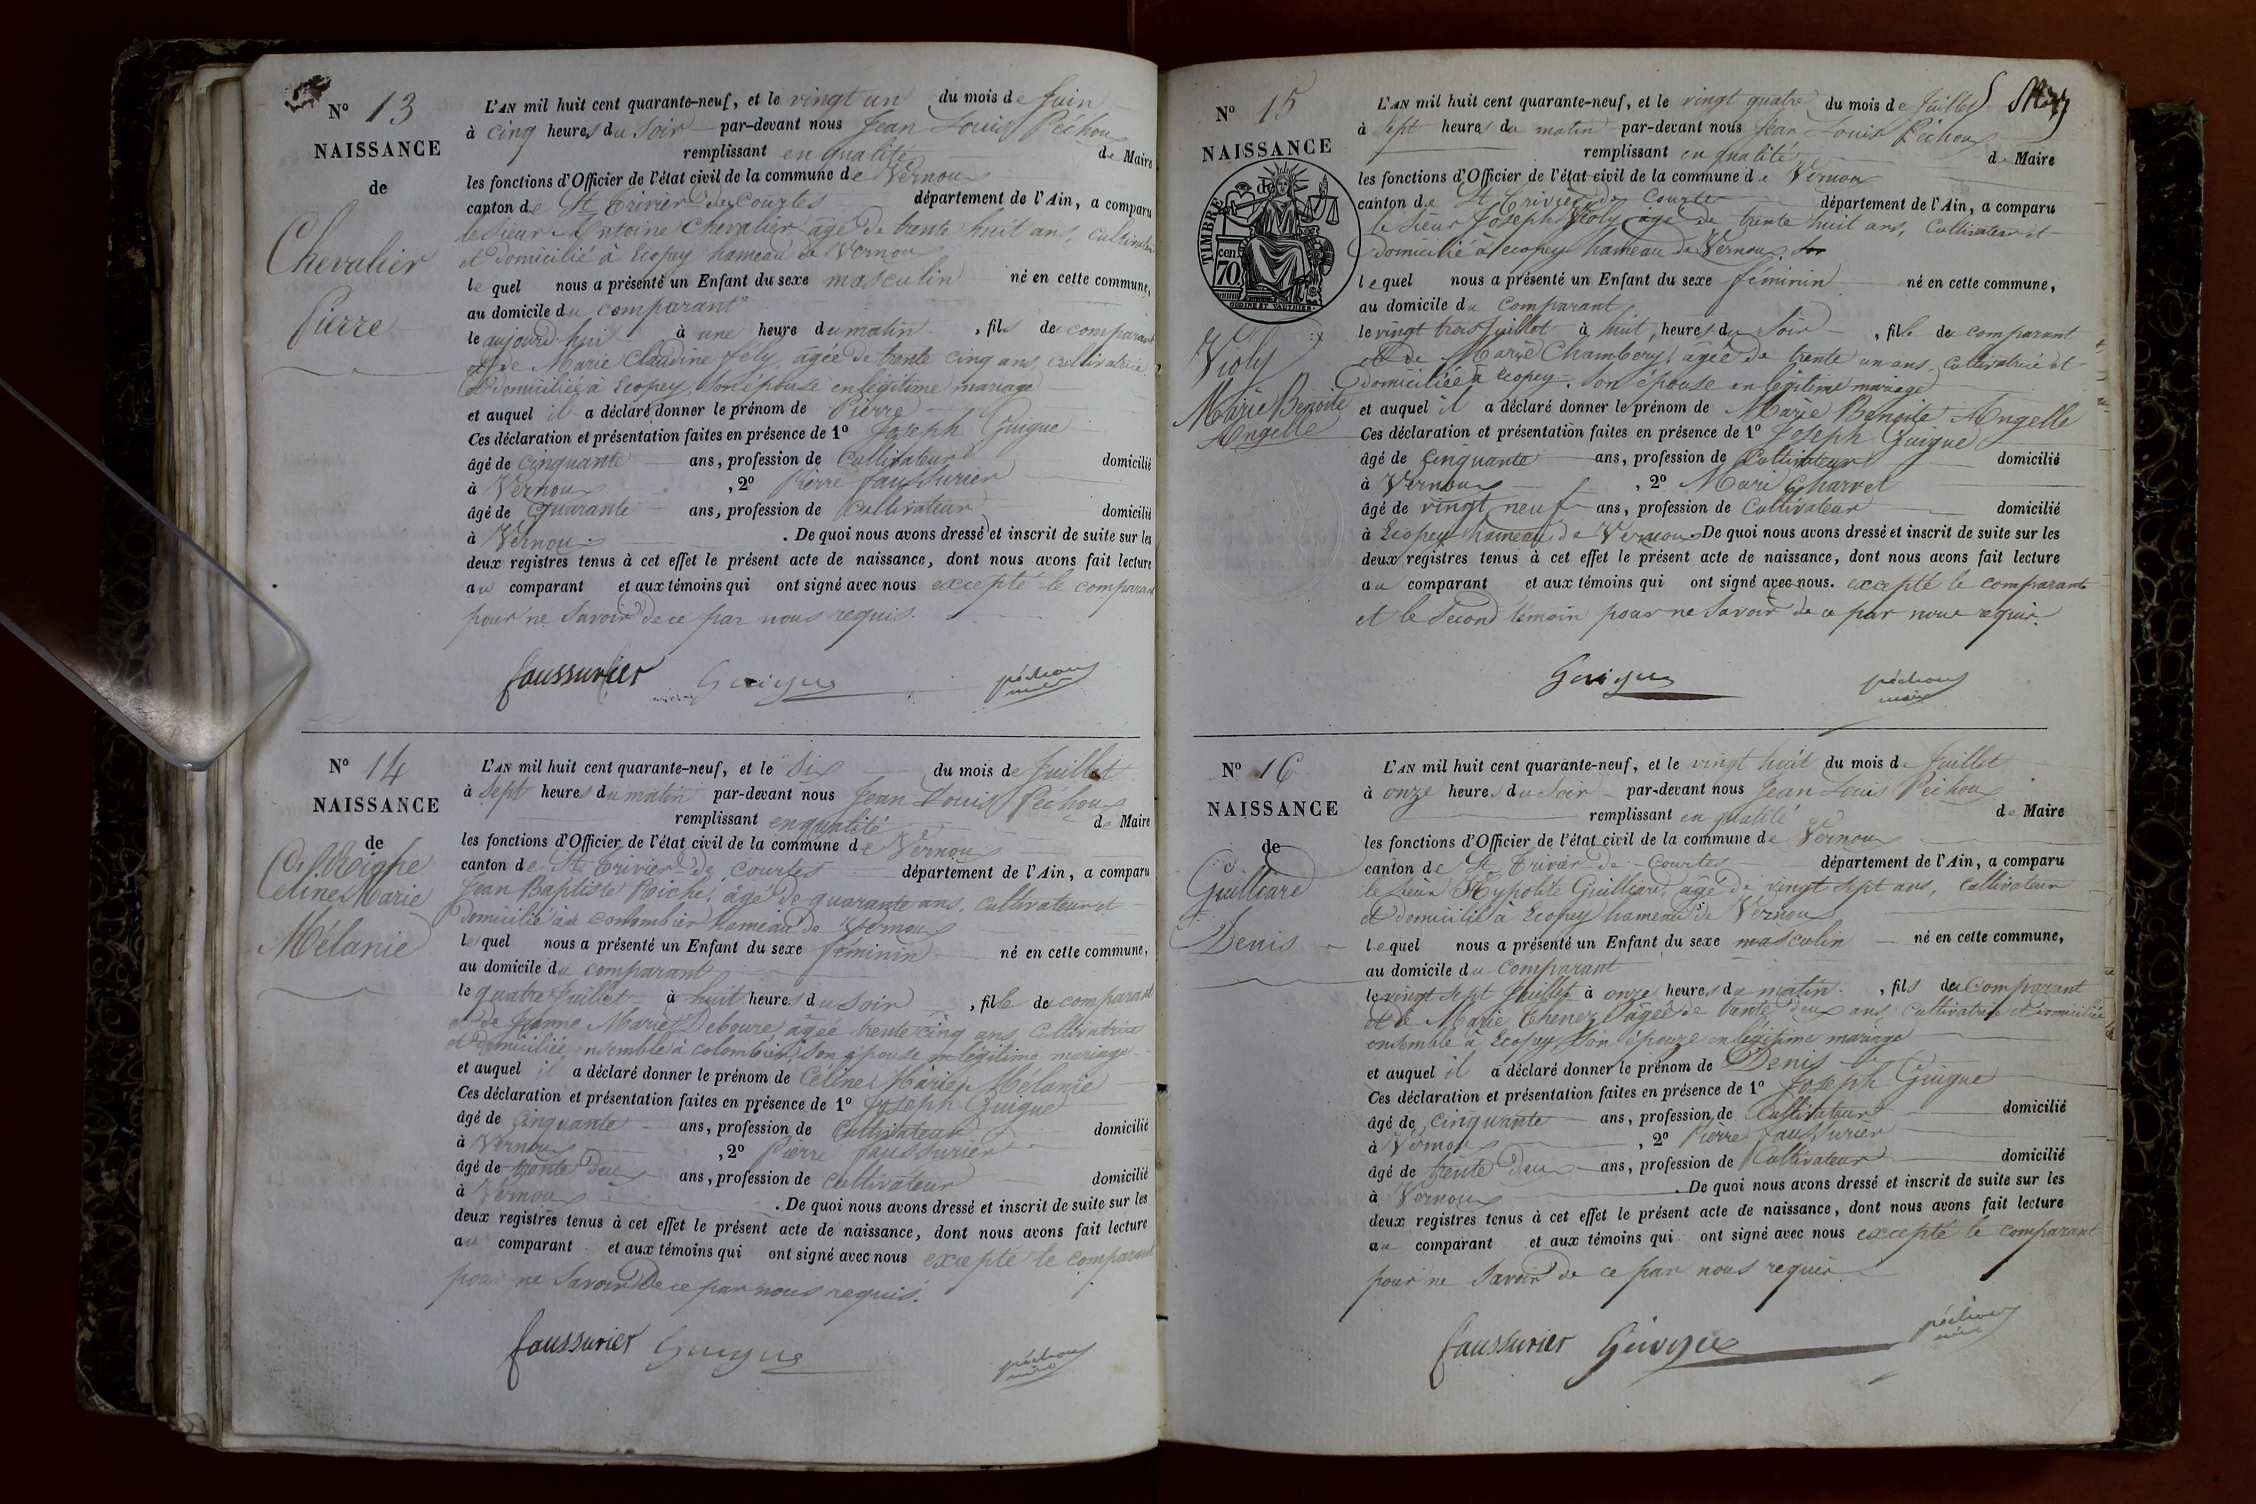 N° 13
NAISSANCE
de
Chevalier
Pierre
L'AN mil huit cent quarante-neuf, et le vingt un du mois de Juin
à cinq heures du Soir par-devant nous Jean Louis Péchoux
remplissant en qualité de Maire
les fonctions d'Officier de l'état civil de la commune de Vernoux
canton de St Trivier de Courtes département de l'Ain, a comparu
le Sieur Antoine Chevalier âgé de trente huit ans, cultivateur
et domicilié à Ecopey hameau de Vernoux
lequel nous a présenté un Enfant du sexe masculin né en cette commune,
au domicile du comparant
le aujourd'hui à une heure du matin, fils du comparant
et de Marie Claudine Fély, âgée de trente cinq ans, cultivatrice
et domiciliée à Ecopey, Son épouse en légitime mariage
et auquel il a déclaré donner le prénom de Pierre
Ces déclaration et présentation faites en présence de 1° Joseph Guigue
âgé de cinquante ans, profession de Cultivateur domicilié
à Vernoux, 2° Pierre faussurier
âgé de quarante ans, profession de Cultivateur domicilié
à Vernoux. De quoi nous avons dressé et inscrit de suite sur les
deux registres tenus à cet effet le présent acte de naissance, dont nous avons fait lecture
au comparant et aux témoins qui ont signé avec nous excepté le comparant
pour ne Savoir de ce par nous requis.
faussurier Guigue péchoux maire
N° 14
NAISSANCE
de
Roiche
Céline Marie
Mélanie
L'AN mil huit cent quarante-neuf, et le Six du mois de Juillet
à Sept heures du matin par-devant nous Jean Louis Péchoux
remplissant en qualité de Maire
les fonctions d'Officier de l'état civil de la commune de Vernoux
canton de St Trivier de Courtes département de l'Ain, a comparu
Jean Baptiste Roiche, âgé de quarante ans, cultivateur et
domicilié au colombier hameau de Vernoux
lequel nous a présenté un Enfant du sexe féminin né en cette commune,
au domicile du comparant
le quatre Juillet à huit heures du soir, fille du comparant
et de Jeanne Marie Deboure, âgée trente cinq ans, Cultivatrice
et domiciliée ensemble à colombier, Son épouse en légitime mariage
et auquel il a déclaré donner le prénom de Céline Marie Mélanie
Ces déclaration et présentation faites en présence de 1° Joseph Guigue
âgé de cinquante ans, profession de Cultivateur domicilié
à Vernoux, 2° Pierre faussurier
âgé de trente deux ans, profession de cultivateur domicilié
à Vernoux. De quoi nous avons dressé et inscrit de suite sur les
deux registres tenus à cet effet le présent acte de naissance, dont nous avons fait lecture
au comparant et aux témoins qui ont signé avec nous excepté le comparant
pour ne Savoir de ce par nous requis.
faussurier Guigue péchoux maire
N° 15
NAISSANCE
de
TIMBRE
70 cen
OUDINE ET VAUTHIER
Violy
Marie Benoite
Angelle
L'AN mil huit cent quarante-neuf, et le vingt quatre du mois de Juillet
à Sept heures du matin par-devant nous Jean Louis Péchoux
remplissant en qualité de Maire
les fonctions d'Officier de l'état civil de la commune de Vernoux
canton de St Trivier de Courtes département de l'Ain, a comparu
le Sieur Joseph Violy âgé de trente huit ans, Cultivateur et
domicilié à Ecopey hameau de Vernoux.
lequel nous a présenté un Enfant du sexe féminin né en cette commune,
au domicile du Comparant
le vingt trois Juillet à huit, heures du Soir, fille du comparant
et de Marie Chambery, âgée de trente un ans, cultivatrice et
domiciliée à Ecopey, Son épouse en légitime mariage
et auquel il a déclaré donner le prénom de Marie Benoite Angelle
Ces déclaration et présentation faites en présence de 1° Joseph Guigue
âgé de cinquante ans, profession de Cultivateur domicilié
à Vernoux, 2° Mari Charvet
âgé de vingt neuf ans, profession de Cultivateur domicilié
à Ecopey hameau de Vernoux De quoi nous avons dressé et inscrit de suite sur les
deux registres tenus à cet effet le présent acte de naissance, dont nous avons fait lecture
au comparant et aux témoins qui ont signé avec nous. excepté le comparante
et le Second témoin pour ne Savoir de ce par nous requis.
Guigue péchoux maire
N° 16
NAISSANCE
de
Guilliard
Denis
L'AN mil huit cent quarante-neuf, et le vingt huit du mois de Juillet
à onze heures du Soir par-devant nous Jean Louis Péchoux
remplissant en qualité de Maire
les fonctions d'Officier de l'état civil de la commune de Vernoux
canton de St Trivier de Courtes département de l'Ain, a comparu
le Sieur Hypolite Guilliard, âgé de vingt sept ans, cultivateur
et domicilié à Ecopey hameau de Vernoux
lequel nous a présenté un Enfant du sexe masculin né en cette commune,
au domicile du Comparant
le vingt sept Juillet à onze heures du matin, fils du comparant
et de Marie Thenoz âgée de trente deux ans cultivatrice et domiciliée
ensemble à Ecopey, Son épouse en légitime mariage
et auquel il a déclaré donner le prénom de Denis
Ces déclaration et présentation faites en présence de 1° Joseph Guigue
âgé de cinquante ans, profession de Cultivateur domicilié
à Vernoux, 2° Pierre faussurier
âgé de trente deux ans, profession de Cultivateur domicilié
à Vernoux. De quoi nous avons dressé et inscrit de suite sur les
deux registres tenus à cet effet le présent acte de naissance, dont nous avons fait lecture
au comparant et aux témoins qui ont signé avec nous excepté le comparant
pour ne Savoir de ce par nous requis
faussurier Guigue péchoux maire